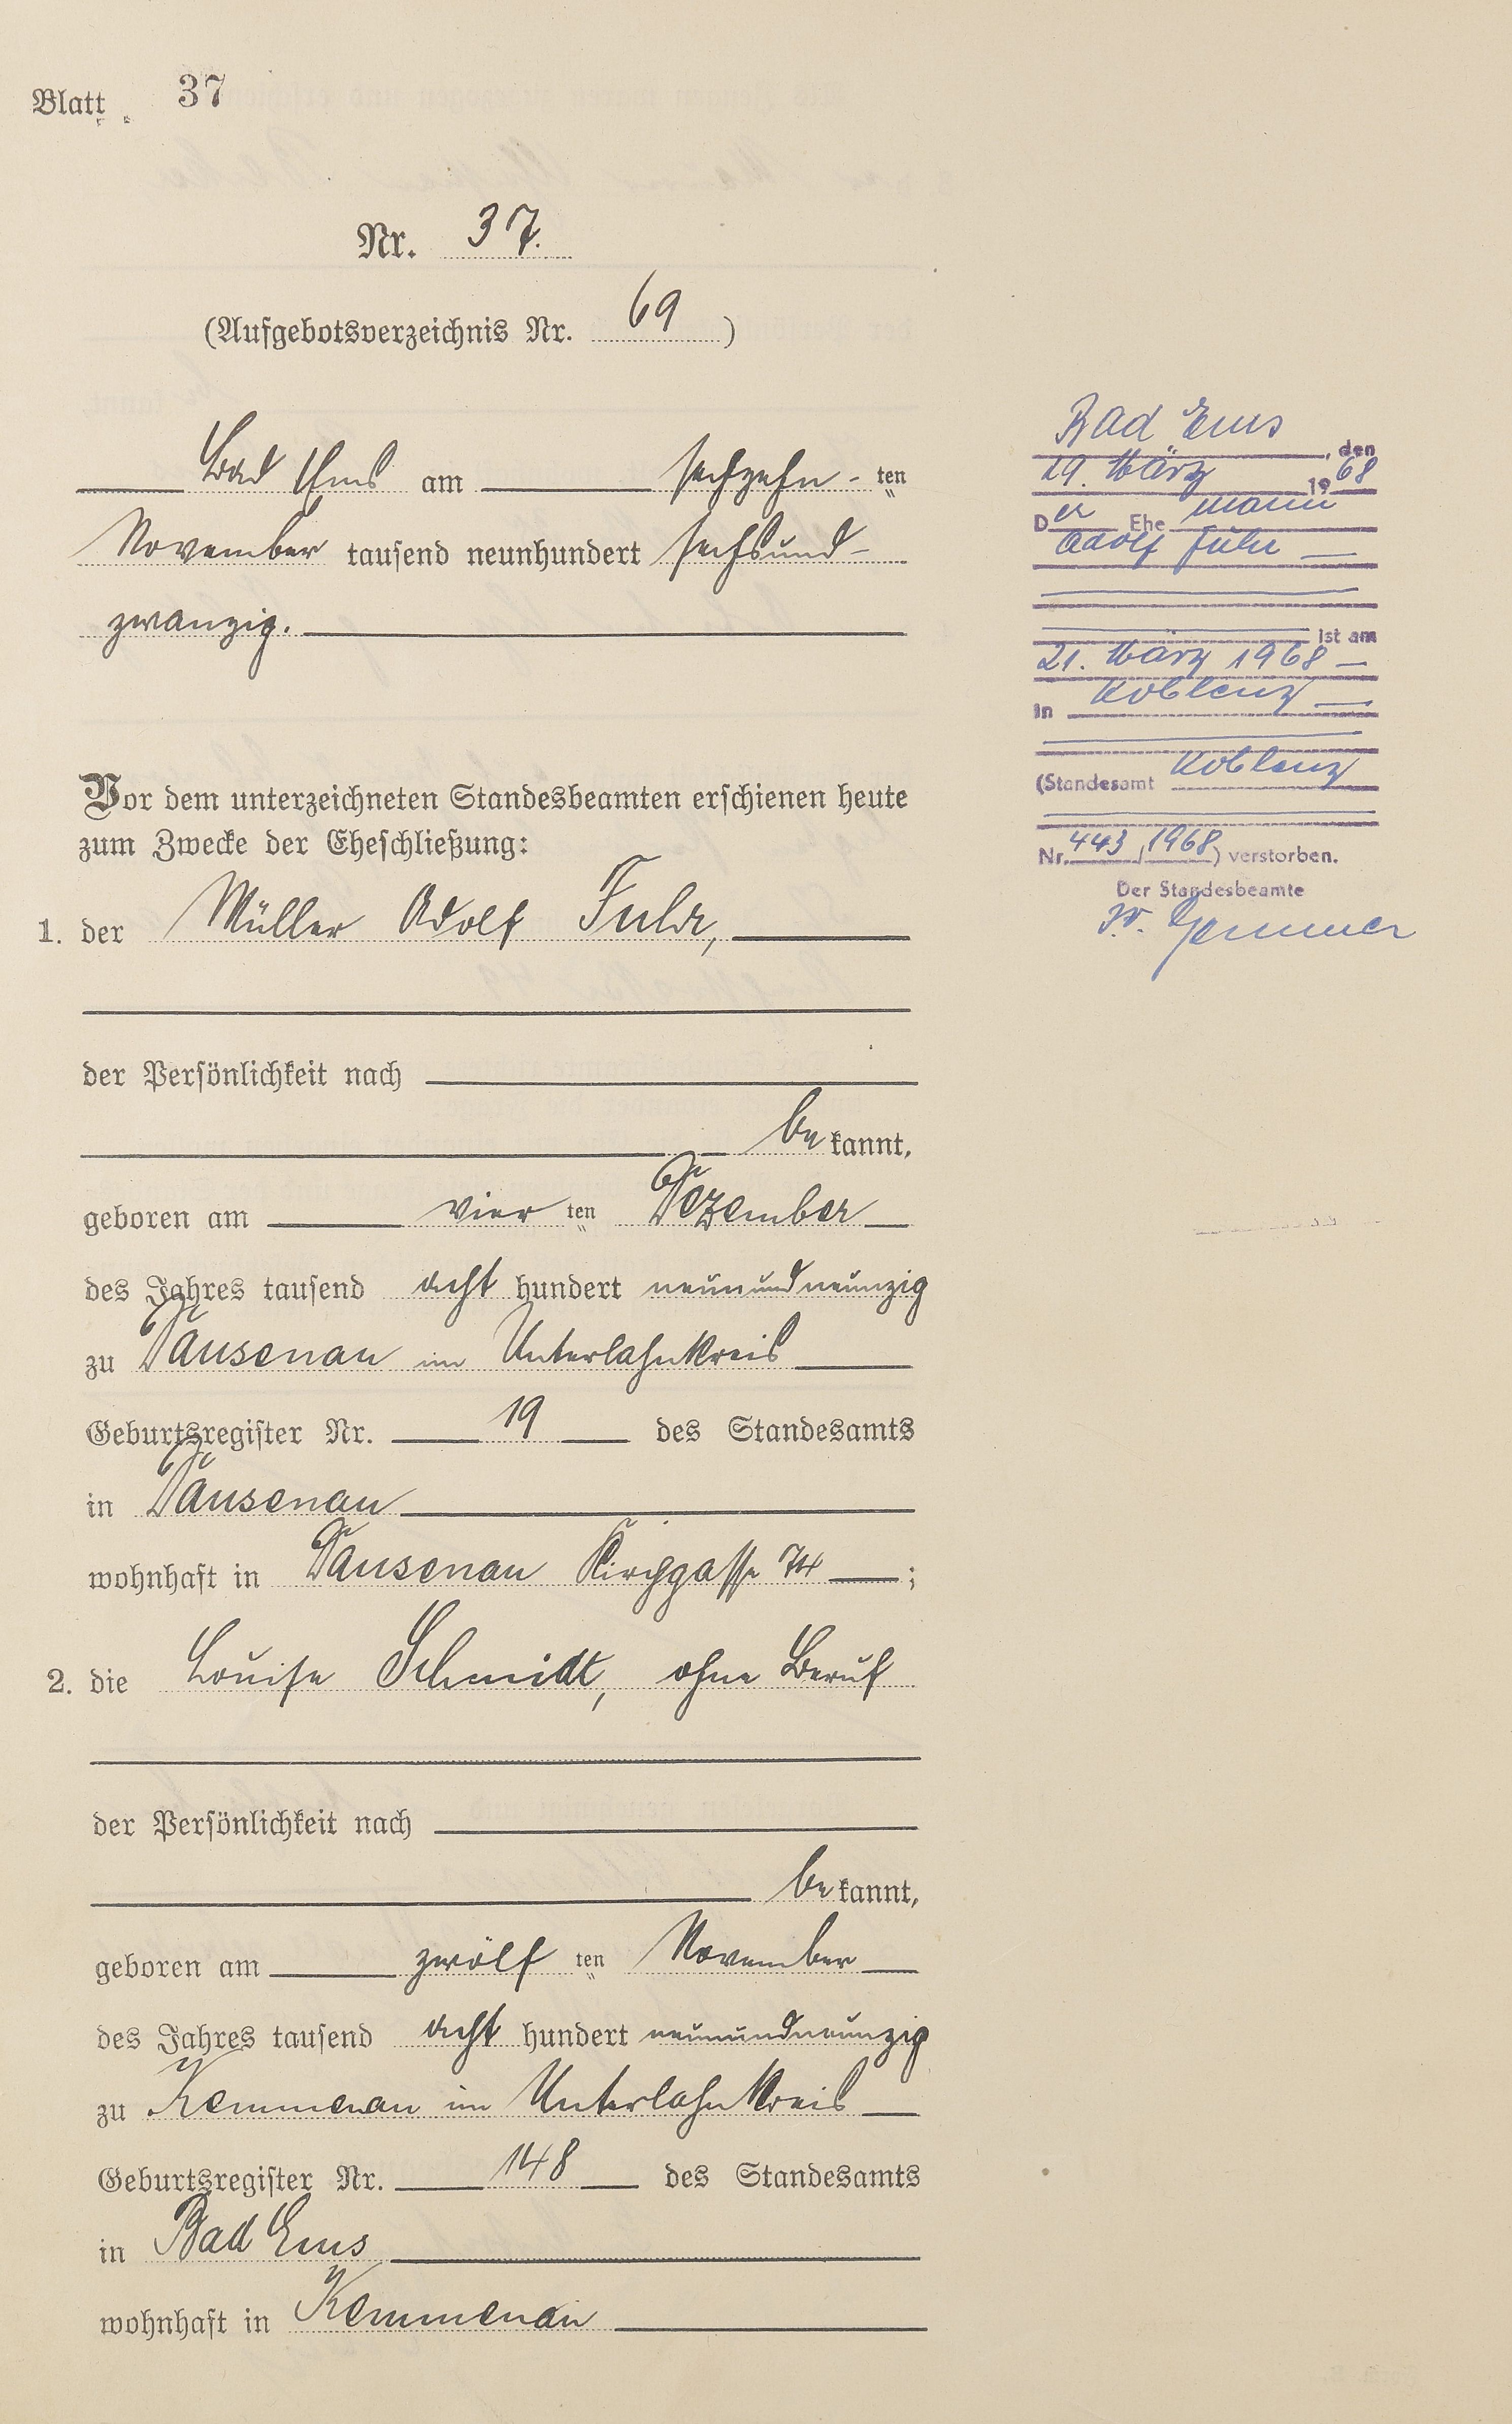 Blatt 37
Nr. 37.
(Aufgebotsverzeichnis Nr. 69)
Bad Ems am sechzehn-ten
November tausend neunhundert sechsund-
zwanzig.
Vor dem unterzeichneten Standesbeamten erschienen heute
zum Zwecke der Eheschließung:
1. der Müller Adolf Fuhr,
der Persönlichkeit nach
be kannt,
geboren am vier ten Dezember
des Jahres tausend acht hundert neunundneunzig
zu Dausenau im Unterlahnkreis
Geburtsregister Nr. 19 des Standesamts
in Dausenau
wohnhaft in Dausenau Kirchgasse 74;
2. die Louise Schmidt, ohne Beruf
der Persönlichkeit nach
be kannt,
geboren am zwölf ten November
des Jahres tausend acht hundert neunundneunzig
zu Kemmenau im Unterlahnkreis
Geburtsregister Nr. 148 des Standesamts
in Bad Ems
wohnhaft in Kemmenau
Bad Ems, den
29. März 1968
Der Ehemann
Adolf Fuhr
ist am
21. März 1968
in Koblenz
(Standesamt Koblenz
Nr. 443/1968) verstorben.
Der Standesbeamte